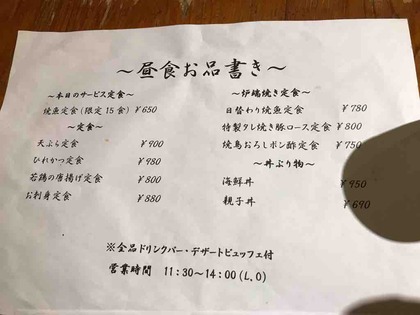 ～昼食お品書き～
～本日のサービス定食～
焼魚定食(限定15食) ¥650
～定食～
天ぷら定食 ¥900
ひれかつ定食 ¥980
若鶏の唐揚げ定食 ¥800
お刺身定食 ¥880
～炉端焼き定食～
日替わり焼魚定食 ¥780
特製タレ焼き豚ロース定食 ¥800
焼鳥おろしポン酢定食 ¥750
～丼ぶり物～
海鮮丼 ¥950
親子丼 ¥690
※全品ドリンクバー・デザートビュッフェ付
営業時間 11:30～14:00(L.O)